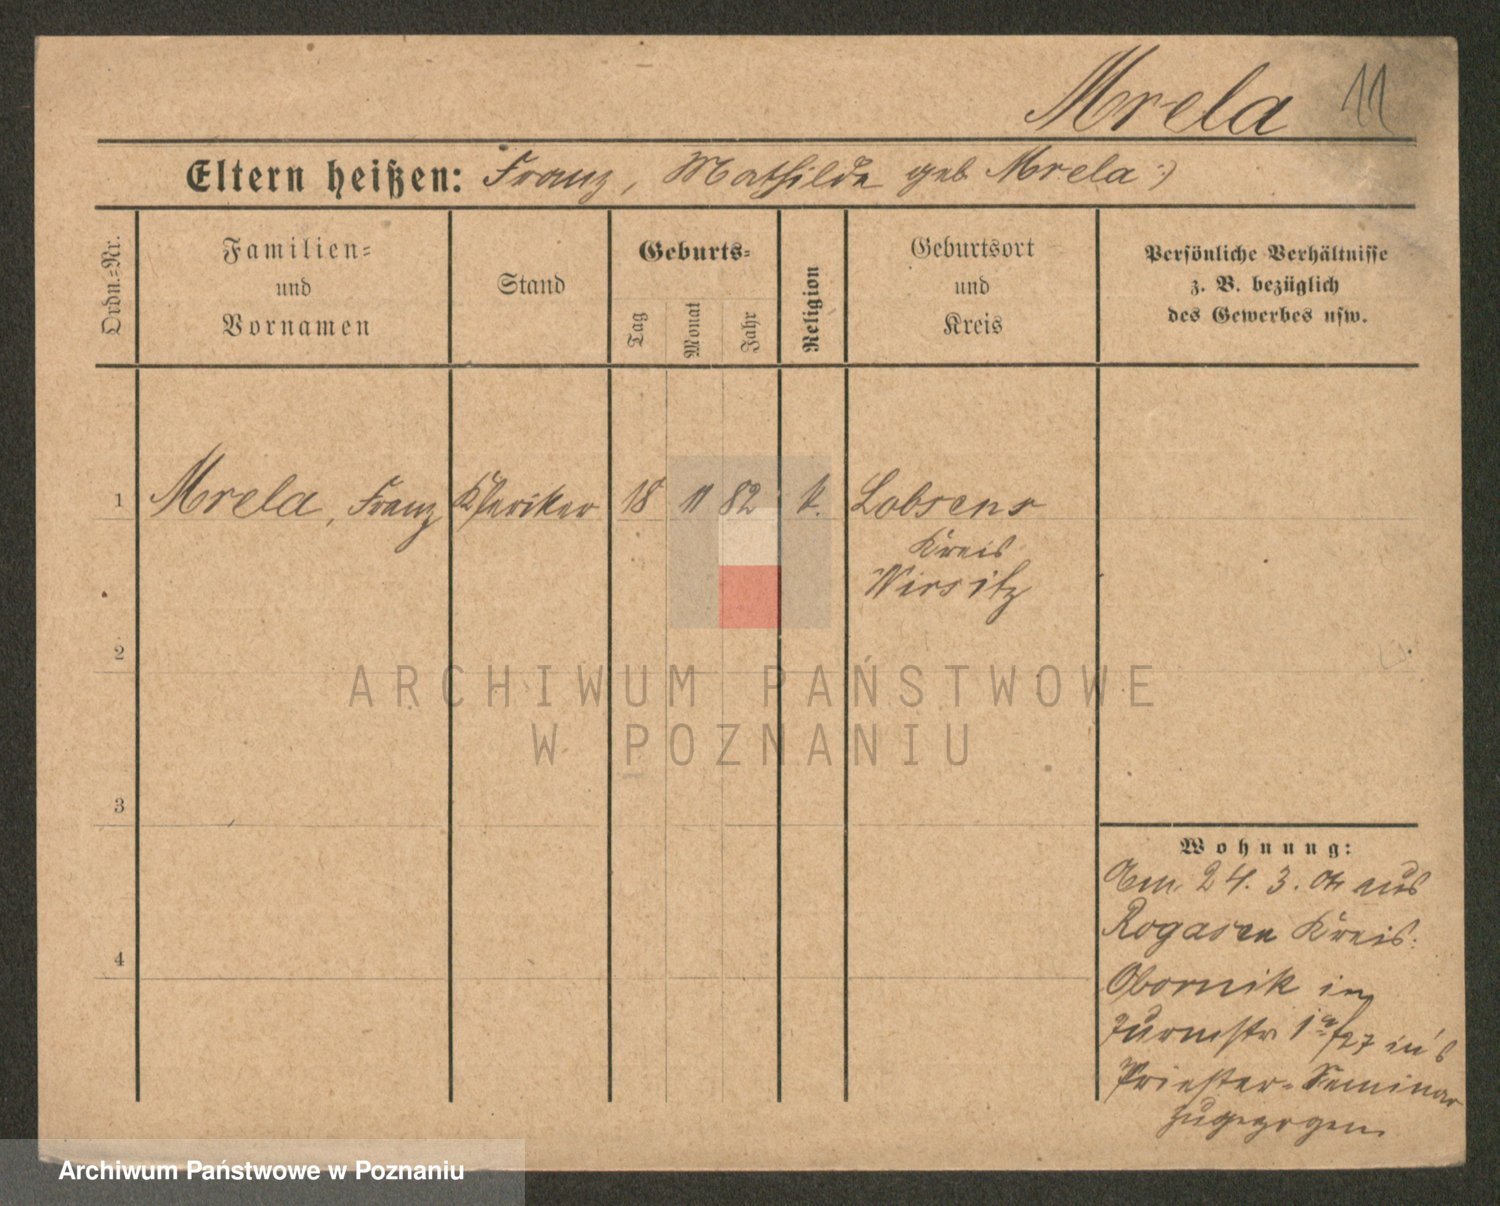 Mrela 11
Eltern heißen: Franz, Mathilde geb Mrela :)
Ordn.=Nr.
Familien=
und
Vornamen
Stand
Geburts=
Tag
Monat
Jahr
Religion
Geburtsort
und
Kreis
Persönliche Verhältnisse
z. B. bezüglich
des Gewerbes usw.
1 Mrela, Franz Kleriker 18 11 82 k. Lobsens
Kreis
Wirsitz
2
3
4
Wohnung:
Am 24. 3. aus
Rogasen Kreis
Obornik in
1 a/27 in's
Priester-Seminar
zugezogen.
ARCHIWUM PAŃSTWOWE
W POZNANIU
Archiwum Państwowe w Poznaniu